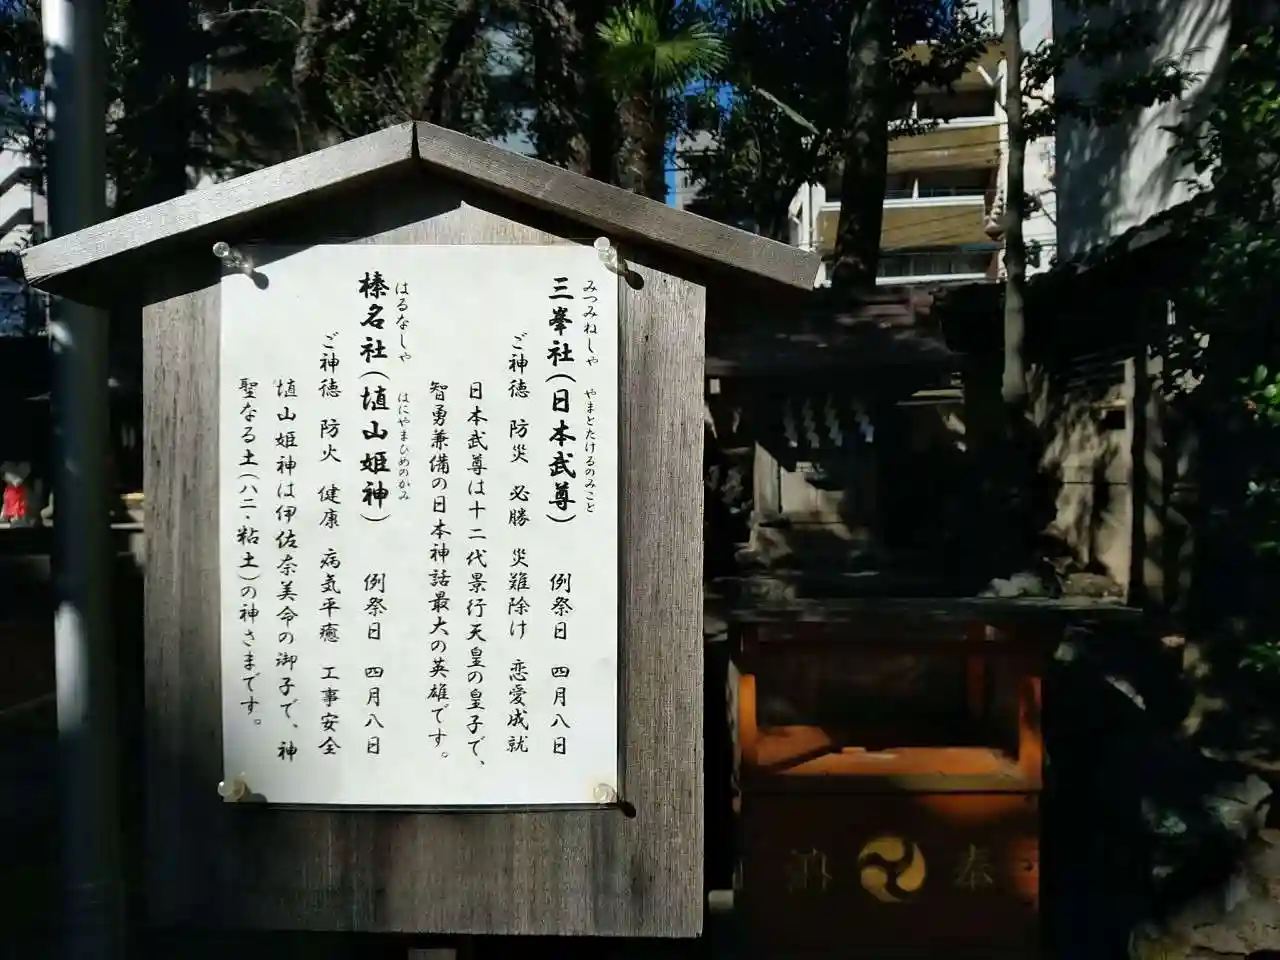 みつみねしゃ やまとたけるのみこと
三峯社(日本武尊) 例祭日 四月八日
ご神徳 防災 必勝 災難除け 恋愛成就
日本武尊は十二代景行天皇の皇子で、
智勇兼備の日本神話最大の英雄です。
はるなしゃ はにやまひめのかみ
榛名社(埴山姫神) 例祭日 四月八日
ご神徳 防火 健康 病気平癒 工事安全
埴山姫神は伊佐奈美命の御子で、神
聖なる土(ハニ・粘土)の神さまです。
奉納